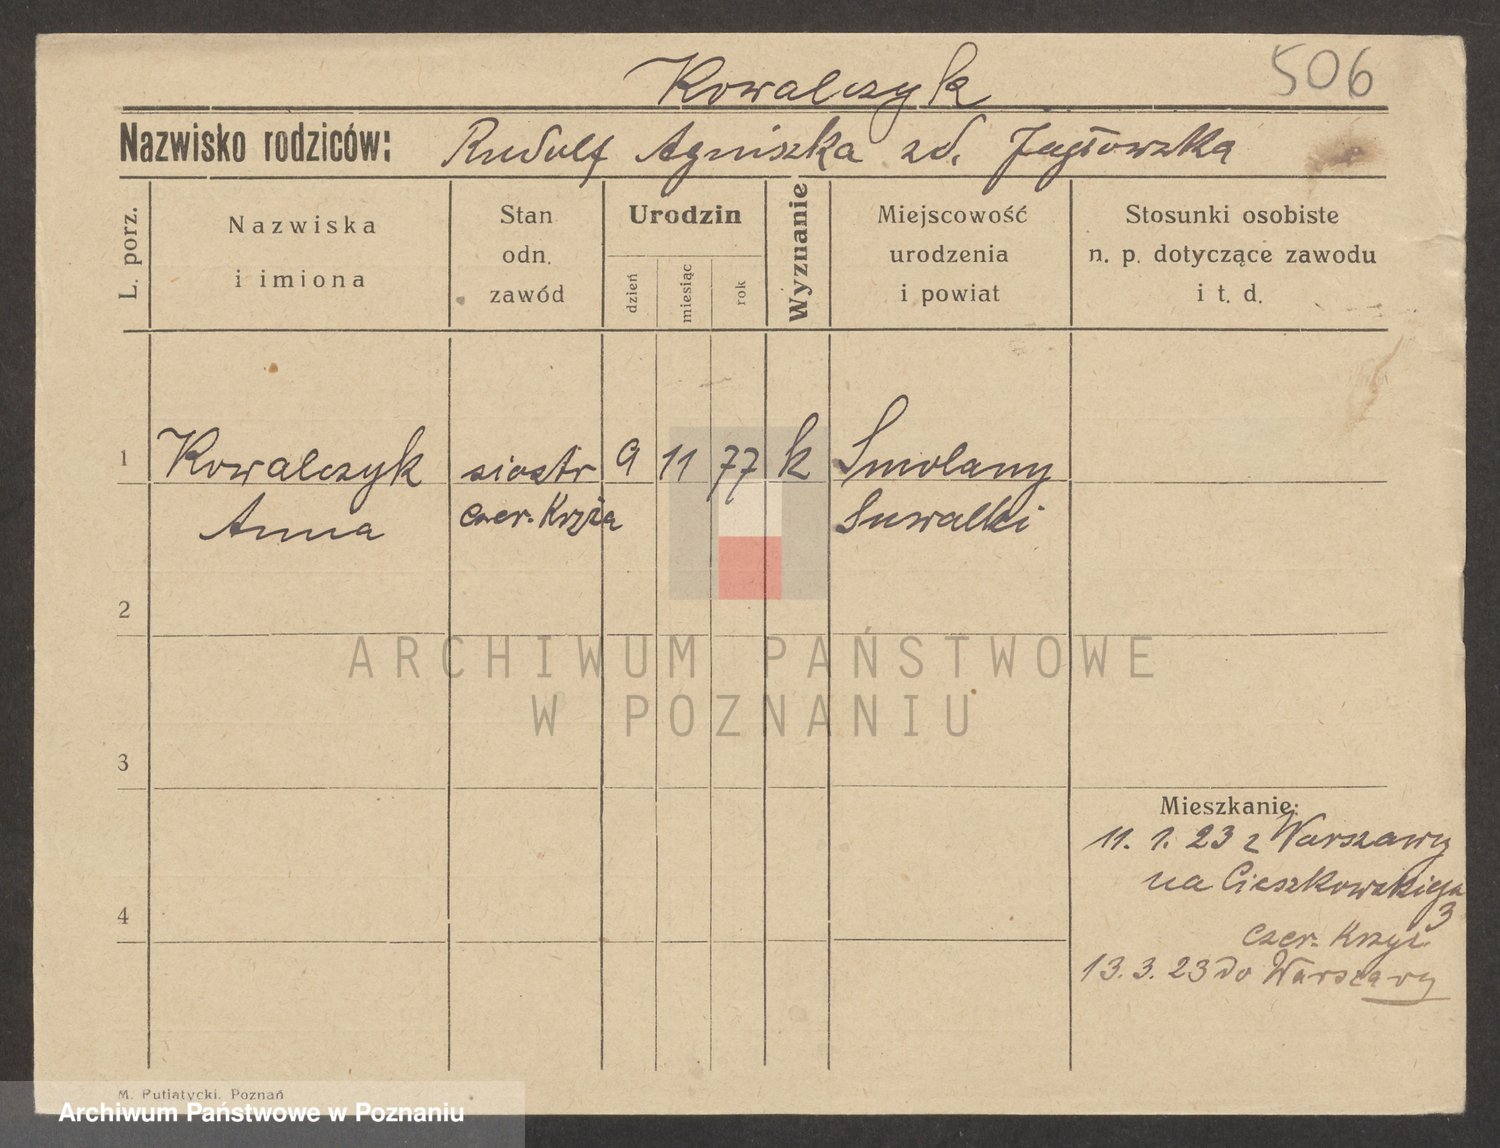 506
Kowalczyk
Nazwisko rodziców: Rudolf Agniszka zd. Jagłowska
L. porz.
Nazwiska
i imiona
Stan
odn.
zawód
Urodzin
dzień
miesiąc
rok
Wyznanie
Miejscowość
urodzenia
i powiat
Stosunki osobiste
n. p. dotyczące zawodu
i t. d.
1 Kowalczyk siostr 9 11 77 k Smolany
Anna czer. Krzyża Suwałki
2
3
4
Mieszkanie:
11. 1. 23 z Warszawy
na Cieszkowskiego
3
czer. Krzyż
13. 3. 23 do Warszawy
M. Putiatycki, Poznań
ARCHIWUM PAŃSTWOWE
W POZNANIU
Archiwum Państwowe w Poznaniu